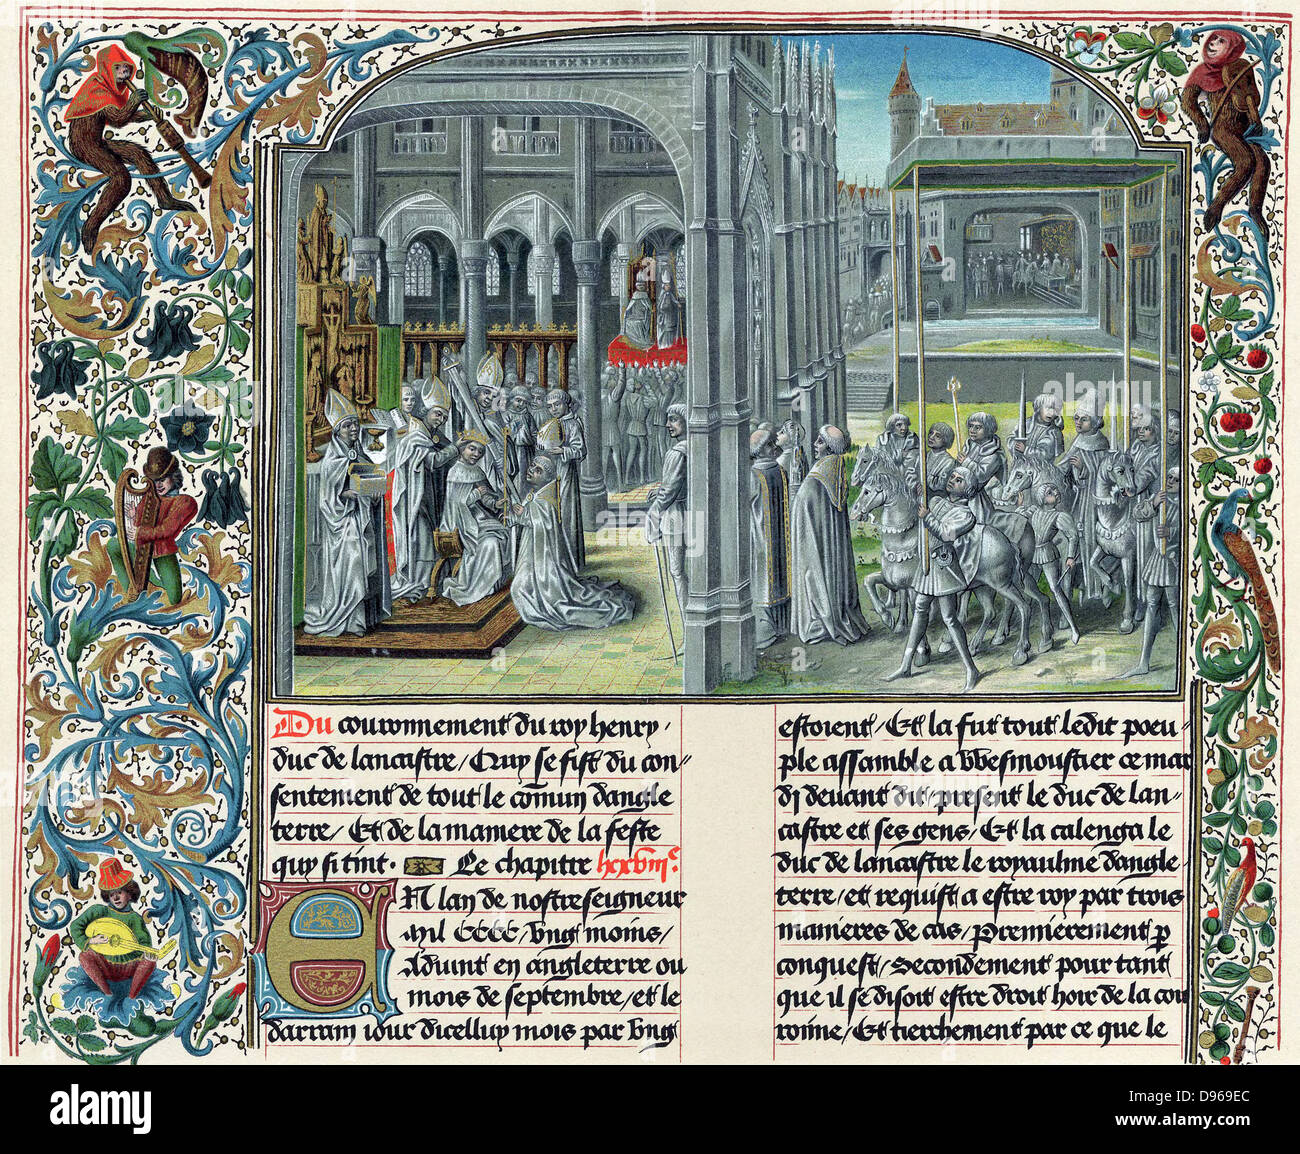 Du couronnement du roy henry /
duc de lancastre / Quy se fist du con=
sentement de tout le comun dangle
terre / Et de la maniere de la feste
quy si tint. Le chapitre
EN lan de nostre seigneur
mil CCCC / vng moins /
Aduint en angleterre ou
mois de septembre / et le
darrain iour dicelluy mois par vng
estoient / Et la fut tout ledit poeu=
ple assamble a Wesmoustier ce mar
dj deuant dit / present le duc de lan
castre et ses gens / Et la calenga le
duc de lancastre le royaulme dangle
terre / et requist a estre roy par trois
manieres de cas / Premierement p
conquest / Secondement pour tant
que il se disoit estre droit hoir de la cou
ronne / Et tierchement par ce que le
alamy
Image ID: D969EC
www.alamy.com